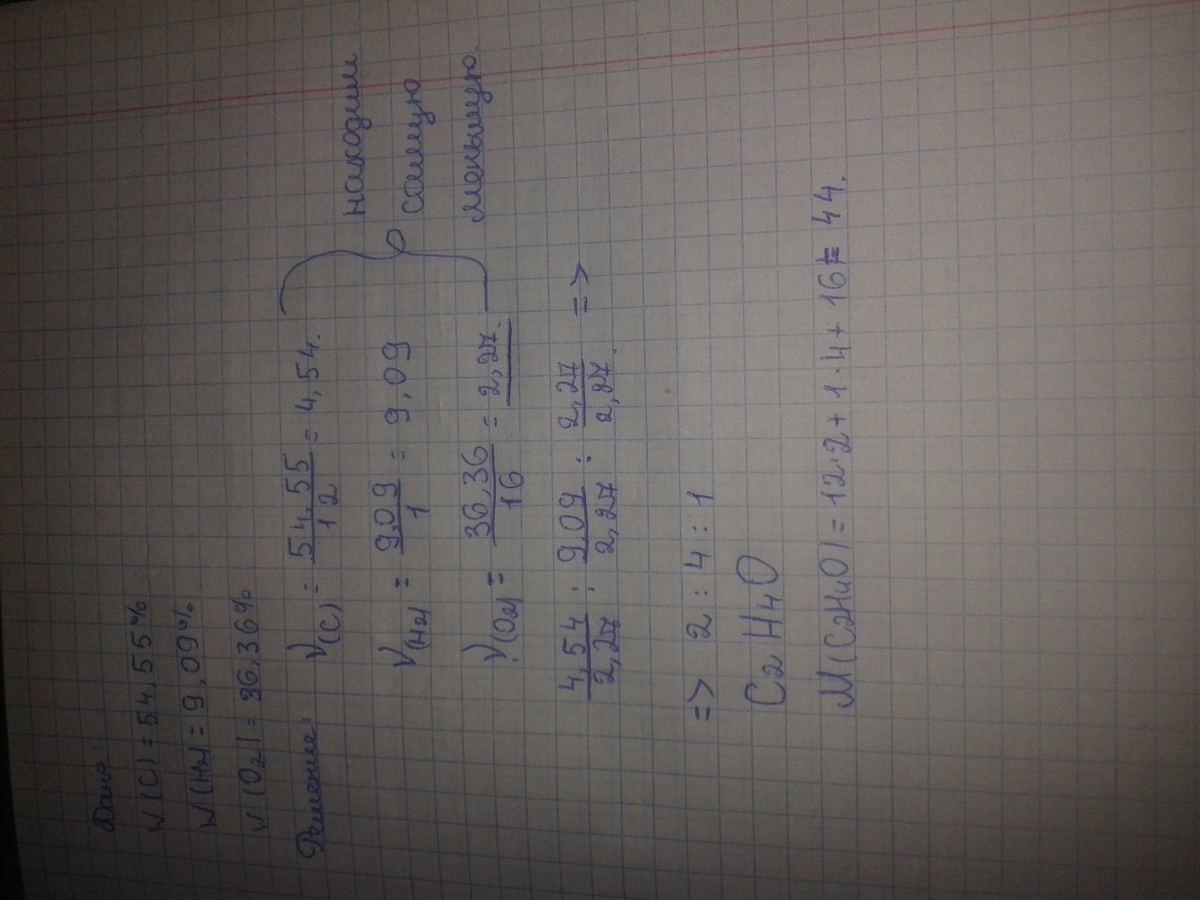 Дано:
W(C) = 54,55%
W(H2) = 9,09%
W(O2) = 36,36%
Решение:
ν(C) = 54,55/12 = 4,54.
ν(H2) = 9,09/1 = 9,09
ν(O2) = 36,36/16 = 2,27.
находим
самую
меньшую.
4,54/2,27 : 9,09/2,27 : 2,27/2,27. =>
=> 2 : 4 : 1
C2H4O
M(C2H4O) = 12·2 + 1·4 + 16 = 44.